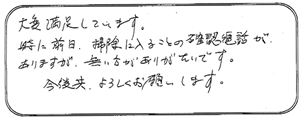 大変満足しています。
特に前日、掃除に入ることの確認電話が、
ありますが、無い方がありがたいです。
今後共、よろしくお願いします。